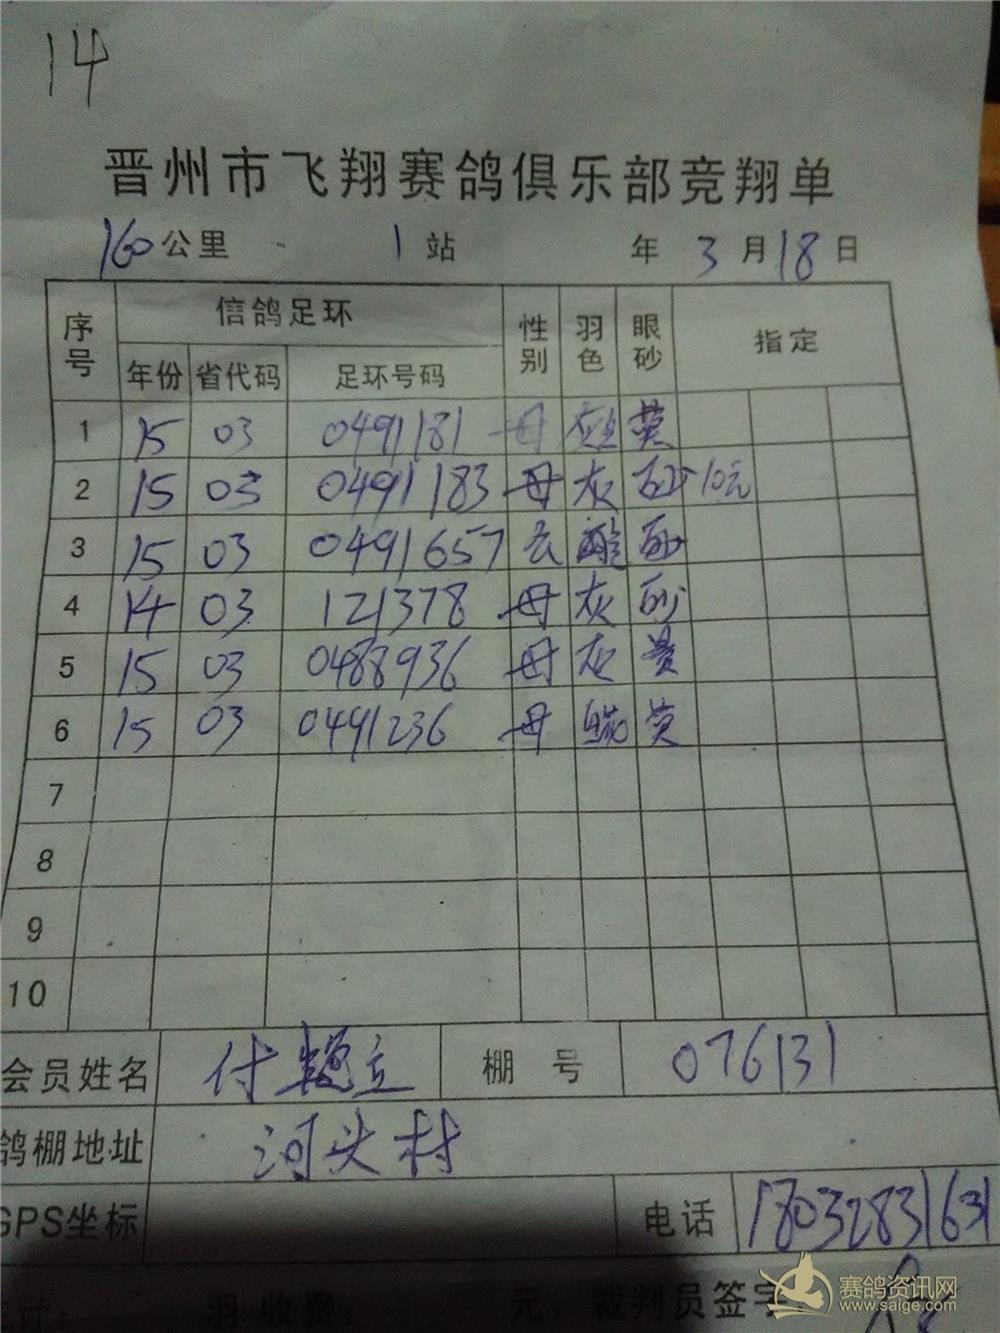 14
晋州市飞翔赛鸽俱乐部竞翔单
160公里 1 站 年 3 月 18 日
序号 信鸽足环 性别 羽色 眼砂 指定
年份 省代码 足环号码
1 15 03 0491181 母 黄
2 15 03 0491183 母 灰 砂 10元
3 15 03 0491657 砂
4 14 03 121378 母 灰 砂
5 15 03 0488936 母 灰 黄
6 15 03 0491236 母 黄
7
8
9
10
会员姓名 付 立 棚号 076131
鸽棚地址 河头村
GPS坐标 电话 18032831631
计: 羽 收费: 元, 裁判员签字
赛鸽资讯网
www.saige.com